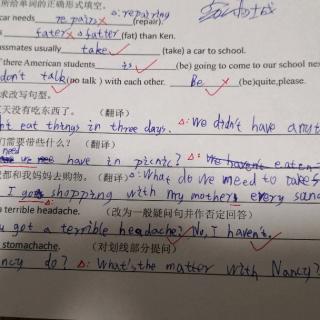 所给单词的正确形式填空。
car needs repair (repair). Δ: repairing
s fater fatter (fat) than Ken.
assmates usually take (take) a car to school.
there American students is (be) going to come to our school next
don't talk (no talk) with each other. Be (be) quite, please.
求改写句型。
天没有吃东西了。 (翻译)
't eat things in three days. Δ: We didn't have
们需要带些什么? (翻译)
need have in picnic? Δ: We haven't eaten
都和我妈妈去购物。(翻译) Δ: What do we need to take
I go shopping with my mother every
a terrible headache. (改为一般疑问句并作否定回答)
u got a terrible headache? No, I haven't.
stomachache. (对划线部分提问)
ncy do? Δ: What's the matter with Nancy?